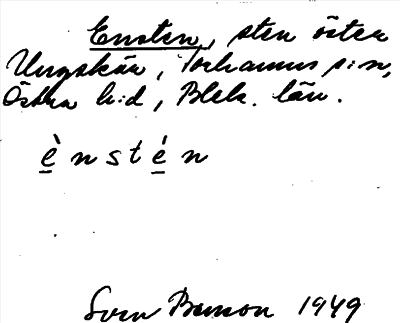 Ensten, sten öster
Ungskär, Torhamns s:n,
Östra h:d, Blek. län.
è̱ n s t é̱ n
Sven Benson 1949